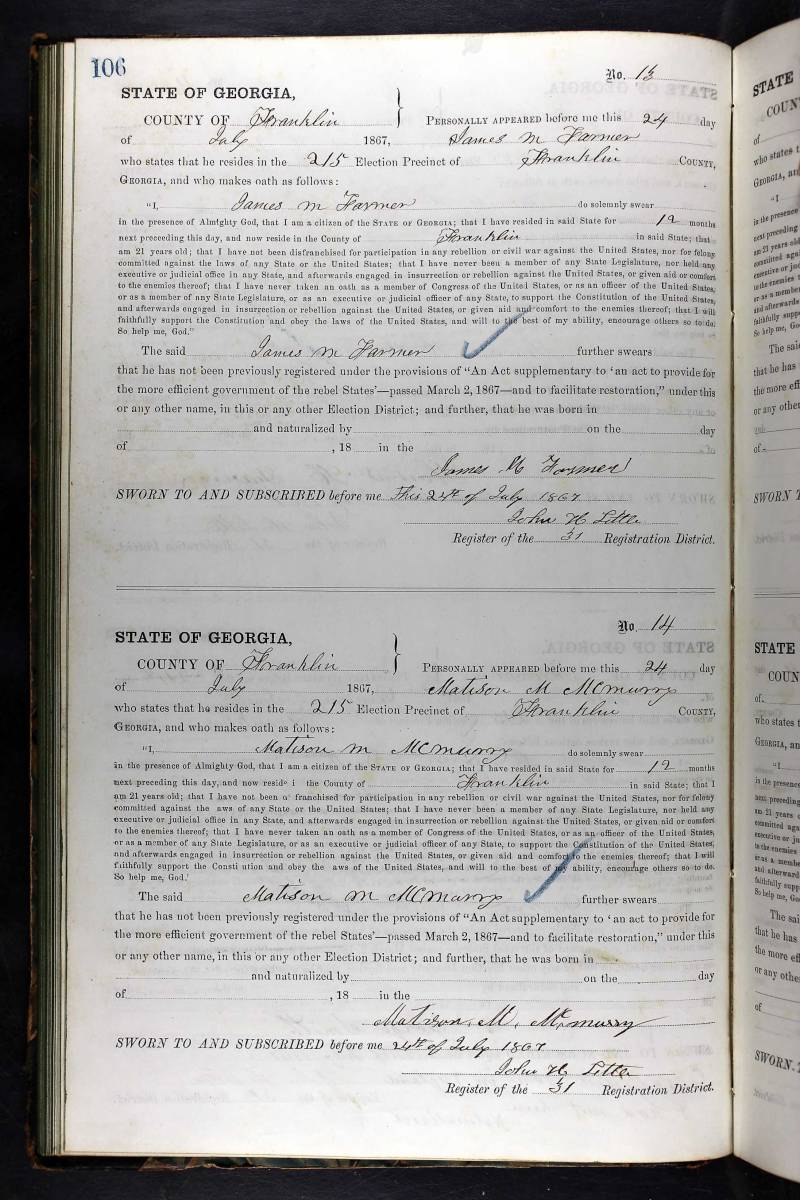 106
No. 13
STATE OF GEORGIA,
COUNTY OF Franklin } PERSONALLY APPEARED before me this 24 day
of July 1867, James M Farmer
who states that he resides in the 215 Election Precinct of Franklin COUNTY,
GEORGIA, and who makes oath as follows:
"I, James M Farmer do solemnly swear
in the presence of Almighty God, that I am a citizen of the STATE OF GEORGIA; that I have resided in said State for 12 months
next preceeding this day, and now reside in the County of Franklin in said State; that
am 21 years old; that I have not been disfranchised for participation in any rebellion or civil war against the United States, nor for felony
committed against the laws of any State or the United States; that I have never been a member of any State Legislature, nor held any
executive or judicial office in any State, and afterwards engaged in insurrection or rebellion against the United States, or given aid or comfort
to the enemies thereof; that I have never taken an oath as a member of Congress of the United States, or as an officer of the United States,
or as a member of any State Legislature, or as an executive or judicial officer of any State, to support the Constitution of the United States,
and afterwards engaged in insurrection or rebellion against the United States, or given aid and comfort to the enemies thereof; that I will
faithfully support the Constitution and obey the laws of the United States, and will to the best of my ability, encourage others so to do.
So help me, God."
The said James M Farmer further swears
that he has not been previously registered under the provisions of "An Act supplementary to 'an act to provide for
the more efficient government of the rebel States'—passed March 2, 1867—and to facilitate restoration," under this
or any other name, in this or any other Election District; and further, that he was born in
and naturalized by on the day
of , 18 in the
James M Farmer
SWORN TO AND SUBSCRIBED before me This 24th of July 1867
John H Little
Register of the 31 Registration District.
No. 14
STATE OF GEORGIA,
COUNTY OF Franklin } PERSONALLY APPEARED before me this 24 day
of July 1867, Matison M McMurry
who states that he resides in the 215 Election Precinct of Franklin COUNTY,
GEORGIA, and who makes oath as follows:
"I, Matison M McMurry do solemnly swear
in the presence of Almighty God, that I am a citizen of the STATE OF GEORGIA; that I have resided in said State for 12 months
next preceding this day, and now resid i the County of Franklin in said State; that I
am 21 years old; that I have not been franchised for participation in any rebellion or civil war against the United States, nor for felony
committed against the aws of any State or the United States; that I have never been a member of any State Legislature, nor held any
executive or judicial office in any State, and afterwards engaged in insurrection or rebellion against the United States, or given aid or comfort
to the enemies thereof; that I have never taken an oath as a member of Congress of the United States, or as an officer of the United States,
or as a member of any State Legislature, or as an executive or judicial officer of any State, to support the Constitution of the United States,
and afterwards engaged in insurrection or rebellion against the United States, or given aid and comfort to the enemies thereof; that I will
faithfully support the Consti ution and obey the aws of the United States, and will to the best of my ability, encourage others so to do.
So help me, God.'
The said Matison M McMurry further swears
that he has not been previously registered under the provisions of "An Act supplementary to 'an act to provide for
the more efficient government of the rebel States'—passed March 2, 1867—and to facilitate restoration," under this
or any other name, in this or any other Election District; and further, that he was born in
and naturalized by on the day
of , 18 in the
Matison, M, McMurry
SWORN TO AND SUBSCRIBED before me 24th of July 1867
John H Little
Register of the 31 Registration District.